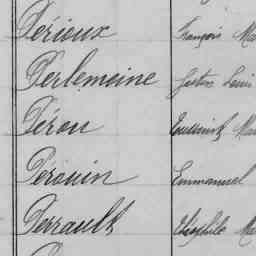 Périoux François Ma
Perlemoine Gaston Louis
Pérou Ma
Pérouin Emmanuel
Perrault Théophile Ma